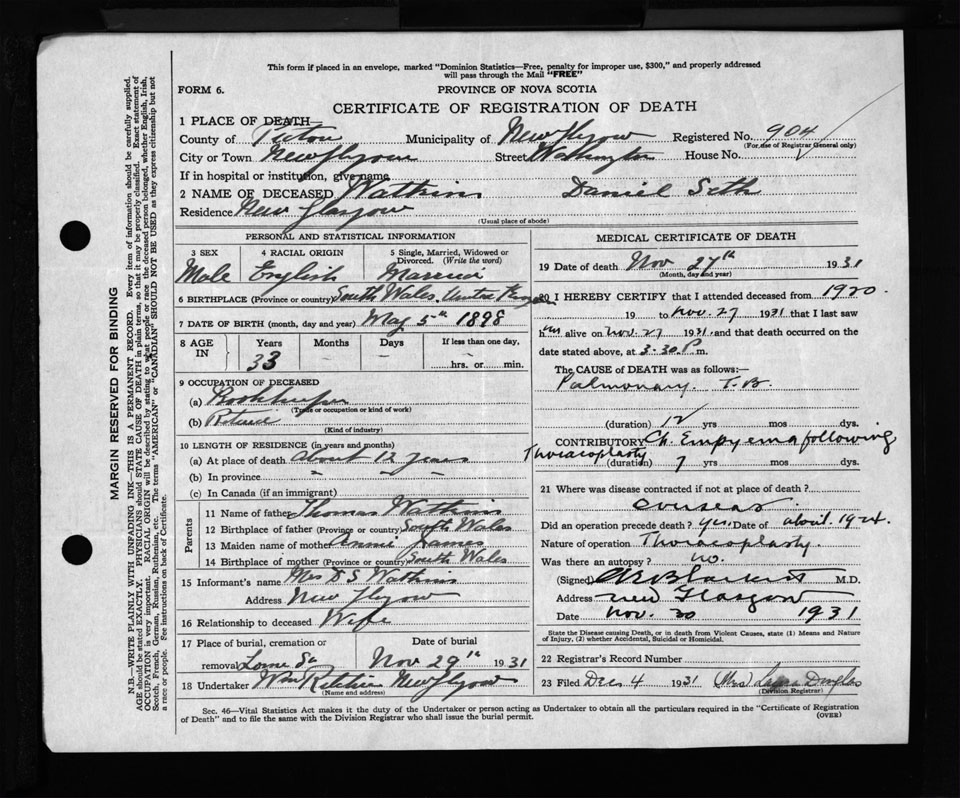 This form if placed in an envelope, marked "Dominion Statistics—Free, penalty for improper use, $300," and properly addressed
will pass through the Mail "FREE"
FORM 6.
PROVINCE OF NOVA SCOTIA
CERTIFICATE OF REGISTRATION OF DEATH
1 PLACE OF DEATH
County of Pictou Municipality of New Glasgow Registered No. 904
(For use of Registrar General only)
City or Town New Glasgow Street Washington House No.
If in hospital or institution, give name
2 NAME OF DECEASED Watkins Daniel Seth
Residence New Glasgow
(Usual place of abode)
PERSONAL AND STATISTICAL INFORMATION
3 SEX 4 RACIAL ORIGIN 5 Single, Married, Widowed or Divorced. (Write the word)
Male English Married
6 BIRTHPLACE (Province or country) South Wales,
7 DATE OF BIRTH (month, day and year) May 5th 1898
8 AGE IN Years Months Days If less than one day,
33 – – hrs. or min.
9 OCCUPATION OF DECEASED
(a) Bookkeeper
(Trade or occupation or kind of work)
(b)
(Kind of industry)
10 LENGTH OF RESIDENCE (in years and months)
(a) At place of death About 12 years
(b) In province " " "
(c) In Canada (if an immigrant)
Parents
11 Name of father Thomas Watkins
12 Birthplace of father (Province or country) South Wales
13 Maiden name of mother Annie James
14 Birthplace of mother (Province or country) South Wales
15 Informant's name Mrs D S Watkins
Address New Glasgow
16 Relationship to deceased Wife
17 Place of burial, cremation or Date of burial
removal Lorne St Nov 29th 1931
18 Undertaker Wm New Glasgow
(Name and address)
MEDICAL CERTIFICATE OF DEATH
19 Date of death Nov 27th 1931
(Month, day and year)
20 I HEREBY CERTIFY that I attended deceased from 1920.
19 to Nov. 27 1931 that I last saw
him alive on Nov. 27 1931, and that death occurred on
date stated above, at 3-30 P m.
The CAUSE OF DEATH was as follows:—
Pulmonary T.B.
(duration) 12 yrs mos dys.
CONTRIBUTORY Ch. Empyema following
Thoracoplasty (duration) 7 yrs mos dys.
21 Where was disease contracted if not at place of death?
Overseas
Did an operation precede death? Yes. Date of about 1924.
Nature of operation Thoracoplasty.
Was there an autopsy? no.
(Signed) M.D.
Address New Glasgow
Date Nov. 30 1931
State the Disease causing Death, or in death from Violent Causes, state (1) Means and Nature
of Injury, (2) whether Accidental, Suicidal or Homicidal.
22 Registrar's Record Number
23 Filed Dec 4 1931 (Mrs) Douglas
(Division Registrar)
Sec. 46—Vital Statistics Act makes it the duty of the Undertaker or person acting as Undertaker to obtain all the particulars required in the "Certificate of Registration
of Death" and to file the same with the Division Registrar who shall issue the burial permit.
(OVER)
MARGIN RESERVED FOR BINDING
N.B.—WRITE PLAINLY WITH UNFADING INK—THIS IS A PERMANENT RECORD. Every item of information should be carefully supplied.
AGE should be stated EXACTLY. PHYSICIANS should STATE CAUSE OF DEATH in plain terms, so that it may be properly classified. Exact statement of
OCCUPATION is very important. RACIAL ORIGIN will be described by stating to what people or race the deceased person belonged, whether English, Irish,
Scotch, French, German, Russian, Ruthenian, etc. The terms "AMERICAN" or "CANADIAN" SHOULD NOT BE USED as they express citizenship but not
a race or people. See instructions on back of Certificate.